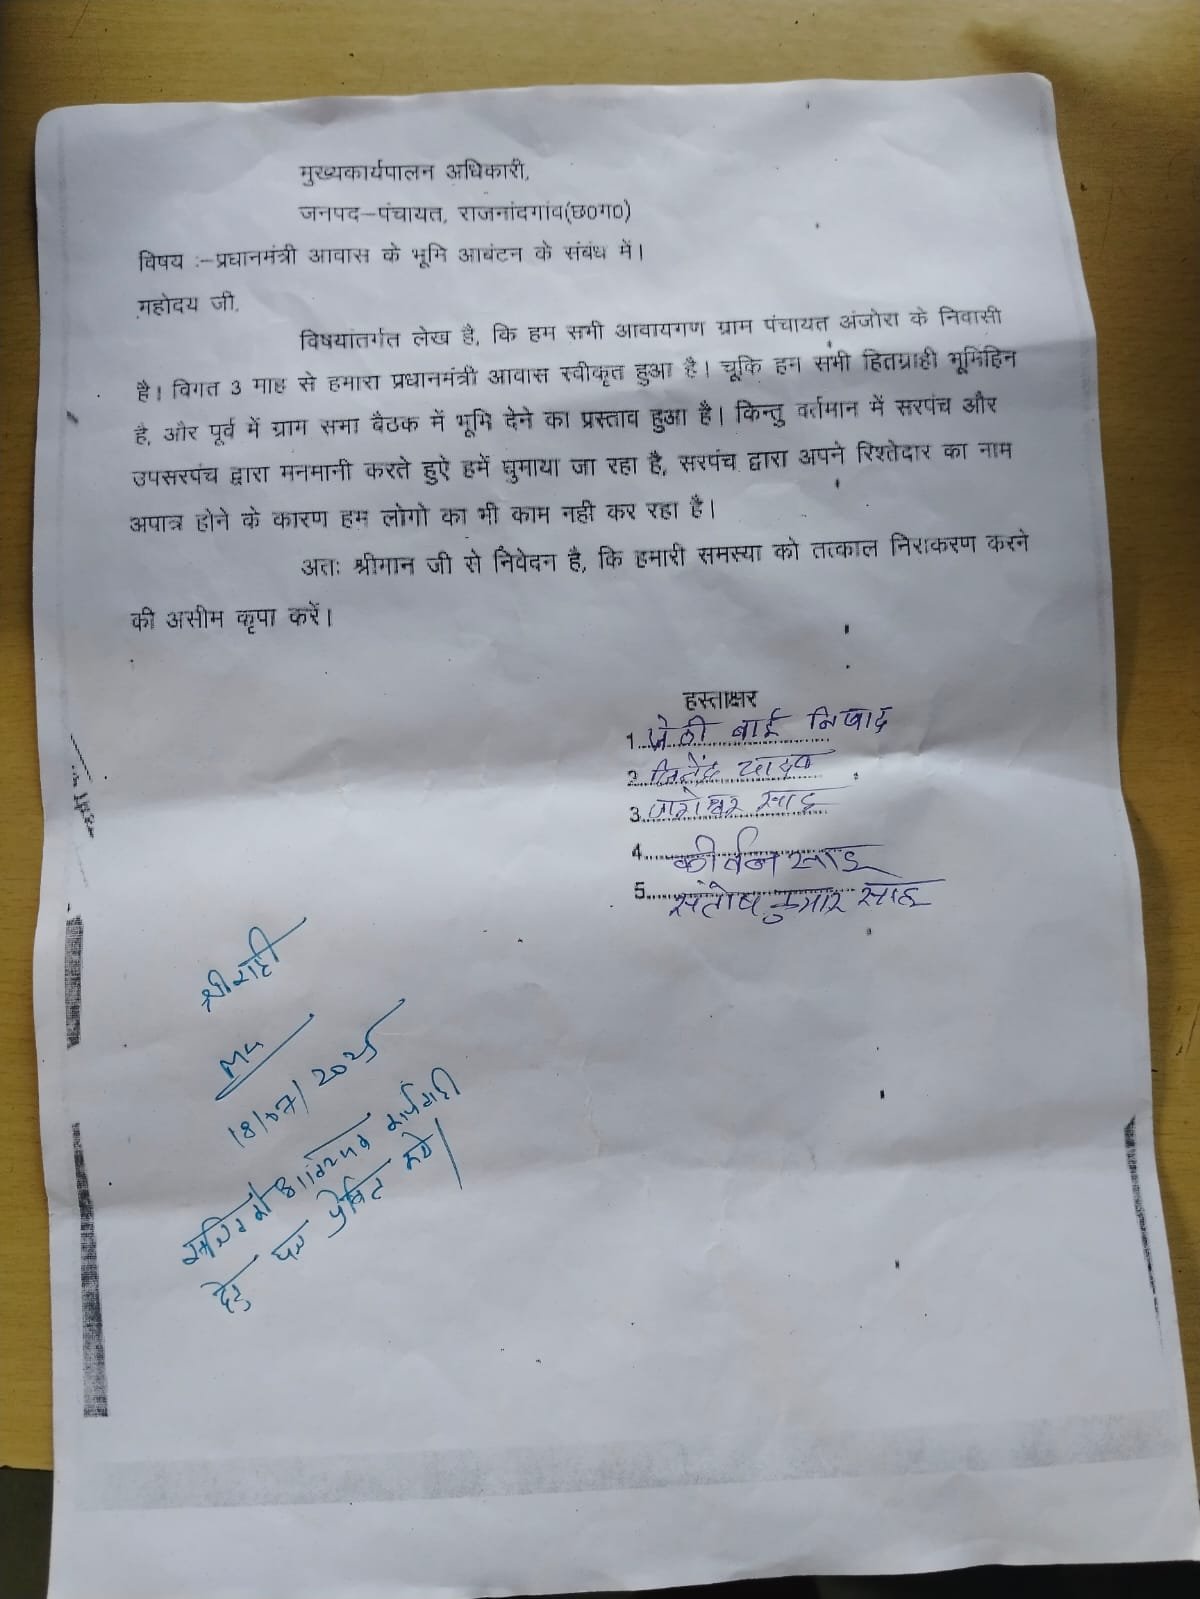 मुख्यकार्यपालन अधिकारी,
जनपद-पंचायत, राजनांदगांव(छ0ग0)
विषय :-प्रधानमंत्री आवास के भूमि आबंटन के संबंध में।
महोदय जी,
विषयांतर्गत लेख है, कि हम सभी आवायगण ग्राम पंचायत अंजोरा के निवासी
है। विगत 3 माह से हमारा प्रधानमंत्री आवास स्वीकृत हुआ है। चूकि हम सभी हितग्राही भूमिहिन
है, और पूर्व में ग्राम सभा बैठक में भूमि देने का प्रस्ताव हुआ है। किन्तु वर्तमान में सरपंच और
उपसरपंच द्वारा मनमानी करते हुऐ हमें घुमाया जा रहा है, सरपंच द्वारा अपने रिश्तेदार का नाम
अपात्र होने के कारण हम लोगो का भी काम नही कर रहा है।
अतः श्रीमान जी से निवेदन है, कि हमारी समस्या को तत्काल निराकरण करने
की असीम कृपा करें।
हस्ताक्षर
1. बाई निषाद
2. यादव
3. जागेश्वर साहू
4. कीर्तन साहू
5. संतोष कुमार साहू
18/07/2025
सचिव को आवश्यक कार्यवाही
हेतु पत्र प्रेषित करें।